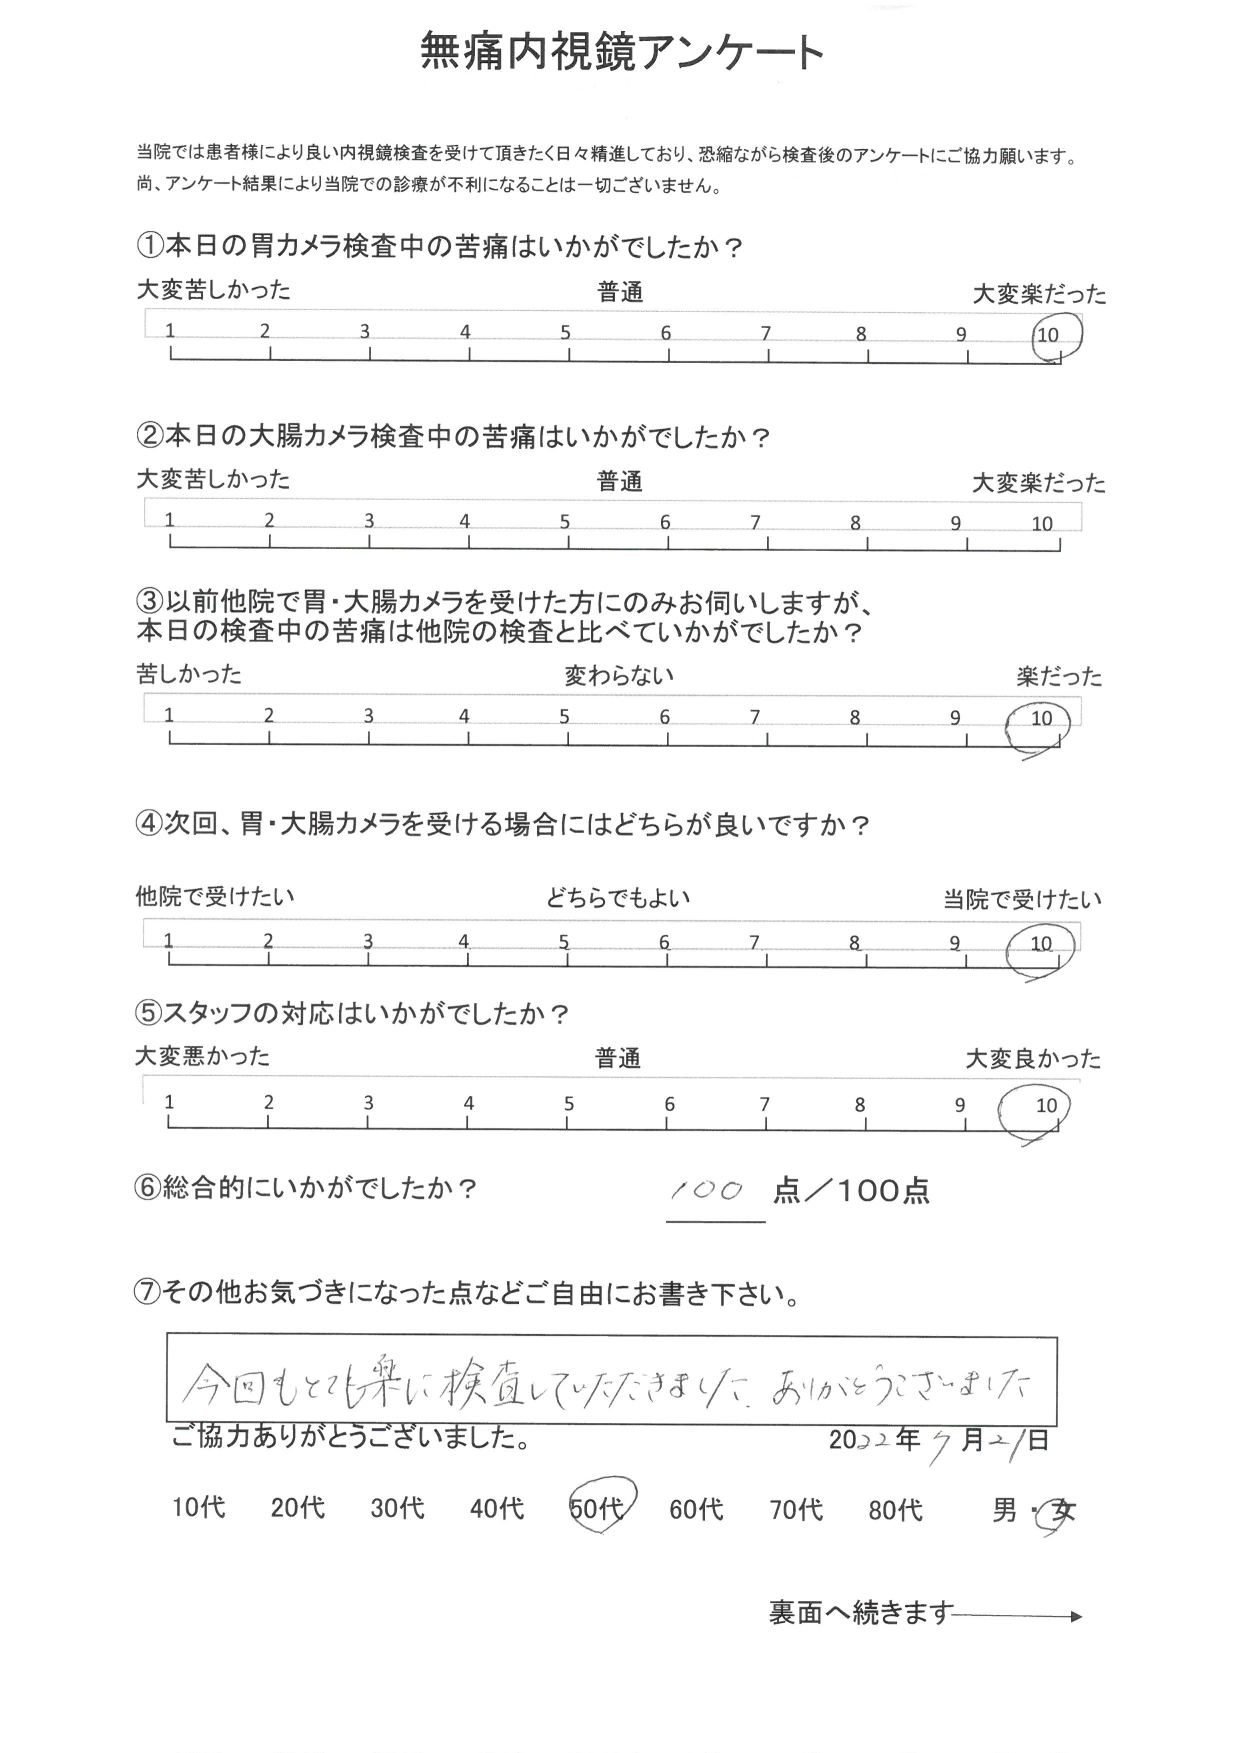 無痛内視鏡アンケート
当院では患者様により良い内視鏡検査を受けて頂きたく日々精進しており、恐縮ながら検査後のアンケートにご協力願います。
尚、アンケート結果により当院での診療が不利になることは一切ございません。
①本日の胃カメラ検査中の苦痛はいかがでしたか？
大変苦しかった 普通 大変楽だった
1 2 3 4 5 6 7 8 9 10
②本日の大腸カメラ検査中の苦痛はいかがでしたか？
大変苦しかった 普通 大変楽だった
1 2 3 4 5 6 7 8 9 10
③以前他院で胃・大腸カメラを受けた方にのみお伺いしますが、
本日の検査中の苦痛は他院の検査と比べていかがでしたか？
苦しかった 変わらない 楽だった
1 2 3 4 5 6 7 8 9 10
④次回、胃・大腸カメラを受ける場合にはどちらが良いですか？
他院で受けたい どちらでもよい 当院で受けたい
1 2 3 4 5 6 7 8 9 10
⑤スタッフの対応はいかがでしたか？
大変悪かった 普通 大変良かった
1 2 3 4 5 6 7 8 9 10
⑥総合的にいかがでしたか？ 100 点／100点
⑦その他お気づきになった点などご自由にお書き下さい。
今回もとても楽に検査していただきました。ありがとうございました
ご協力ありがとうございました。 2022年 7月21日
10代 20代 30代 40代 50代 60代 70代 80代 男・女
裏面へ続きます